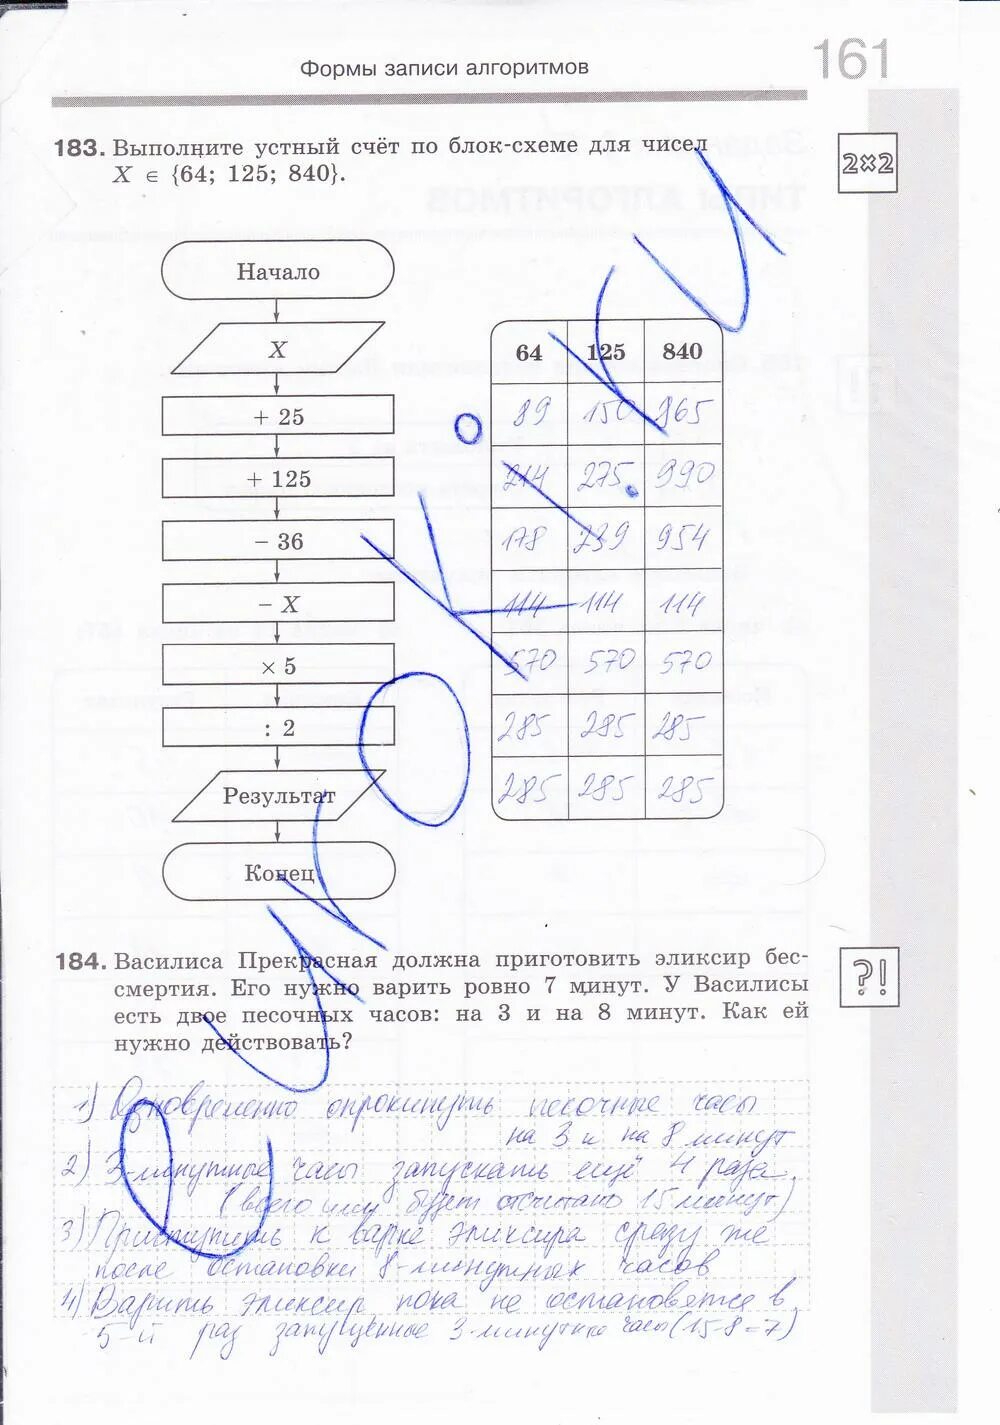 Формы записи алгоритмов
161
183. Выполните устный счёт по блок-схеме для чисел
X ∈ {64; 125; 840}.
2×2
Начало
X
+ 25
+ 125
− 36
− X
× 5
: 2
Результат
Конец
64 125 840
89 150 865
214 275 990
178 239 954
114 114 114
570 570 570
285 285 285
285 285 285
184. Василиса Прекрасная должна приготовить эликсир бес-
смертия. Его нужно варить ровно 7 минут. У Василисы
есть двое песочных часов: на 3 и на 8 минут. Как ей
нужно действовать?
?!
1) Одновременно опрокинуть песочные часы
на 3 и на 8 минут
2) 3-минутные часы запускать ещё 4 раза
(всего ими будет отсчитано 15 минут)
3) Приступить к варке эликсира сразу же
после остановки 8-минутных часов
4) Варить эликсир пока не остановятся в
5-й раз запущенные 3-минутные часы (15-8=7)